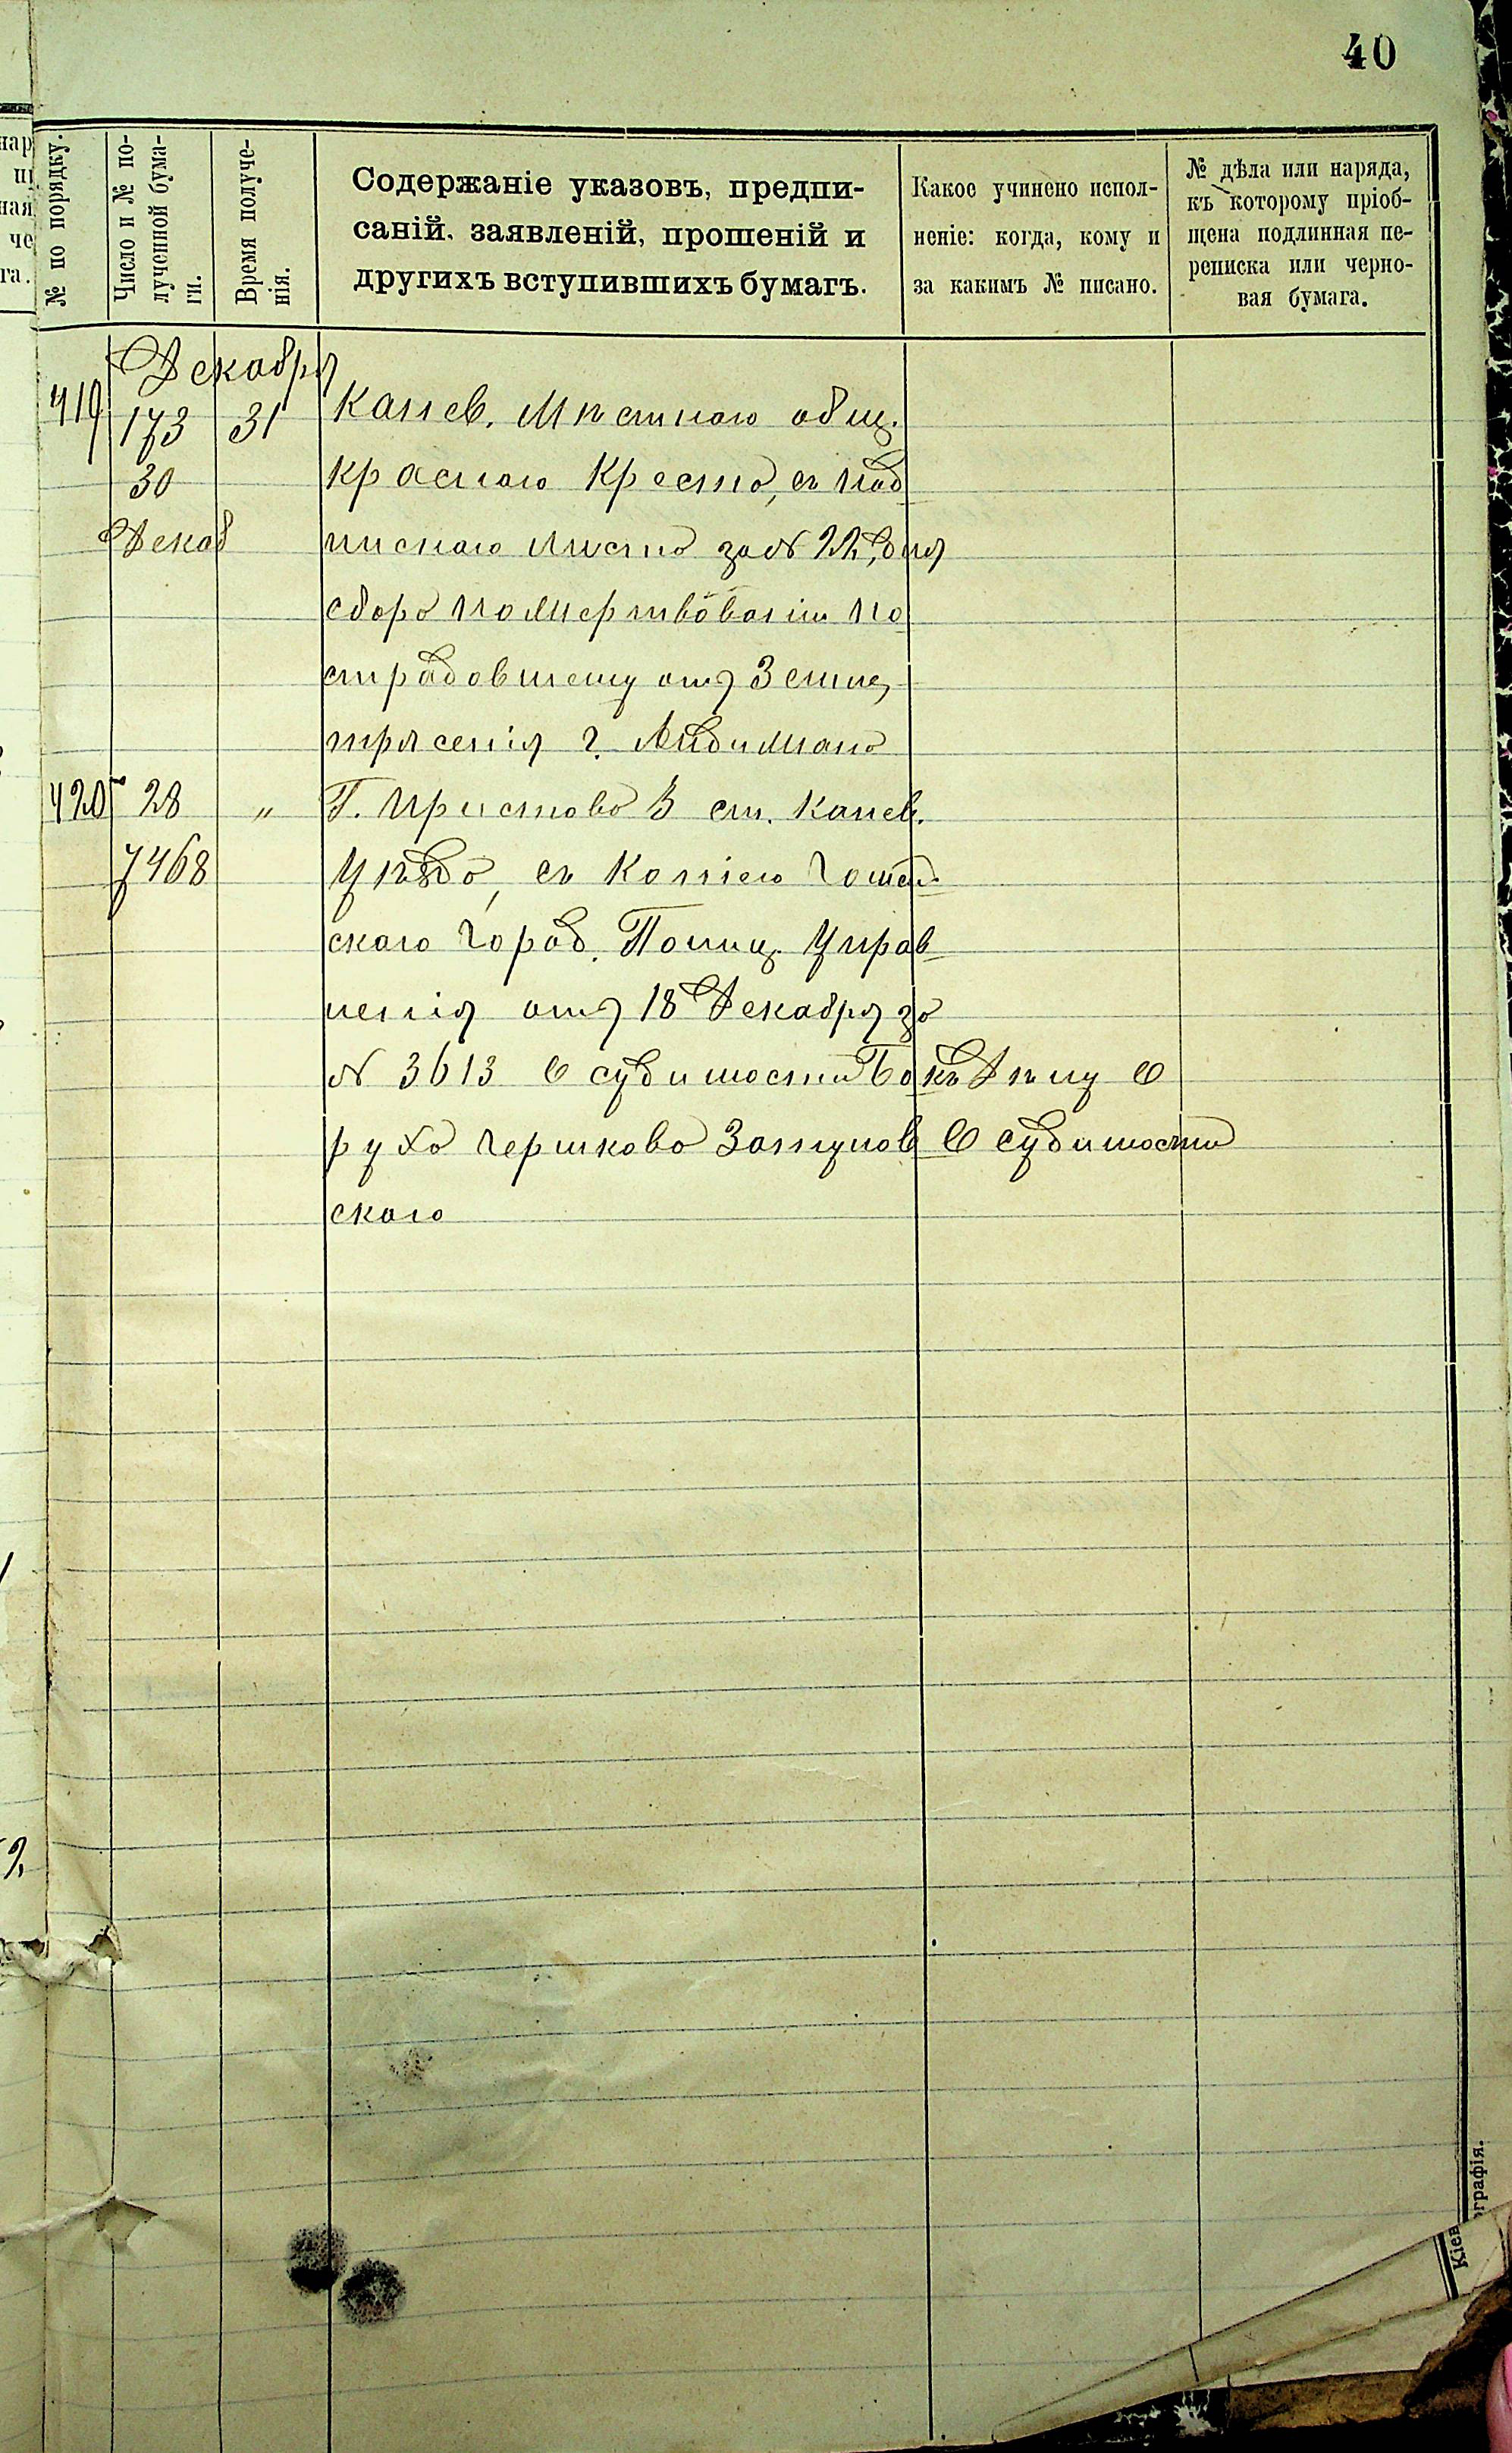 40
№ по порядку.
Число и № по-
лученной бума-
ги.
Время получе-
нія.
Содержаніе указовъ, предпи-
саній, заявленій, прошеній и
другихъ вступившихъ бумагъ.
Какое учинено испол-
неніе: когда, кому и
за какимъ № писано.
№ дѣла или наряда,
къ которому пріоб-
щена подлинная пе-
реписка или черно-
вая бумага.
Декабря
419 173 31 Канев. Мѣстного общ.
30 красного Креста, съ под
Декаб писного листа за № 22, для
сбора пожертвованій по
страдавшему отъ Земле,
трясенія г. Андижана
420 28 " Г. Пристава 3 ст. Канев.
7468 уѣзда, съ копіею
ского Город. Полиц. Управ
ленія отъ 18 Декабря за
№ 3613 О судимости Бо къ Дѣлу О
руха Гершкова О судимости
ского
Кіев
ографія.